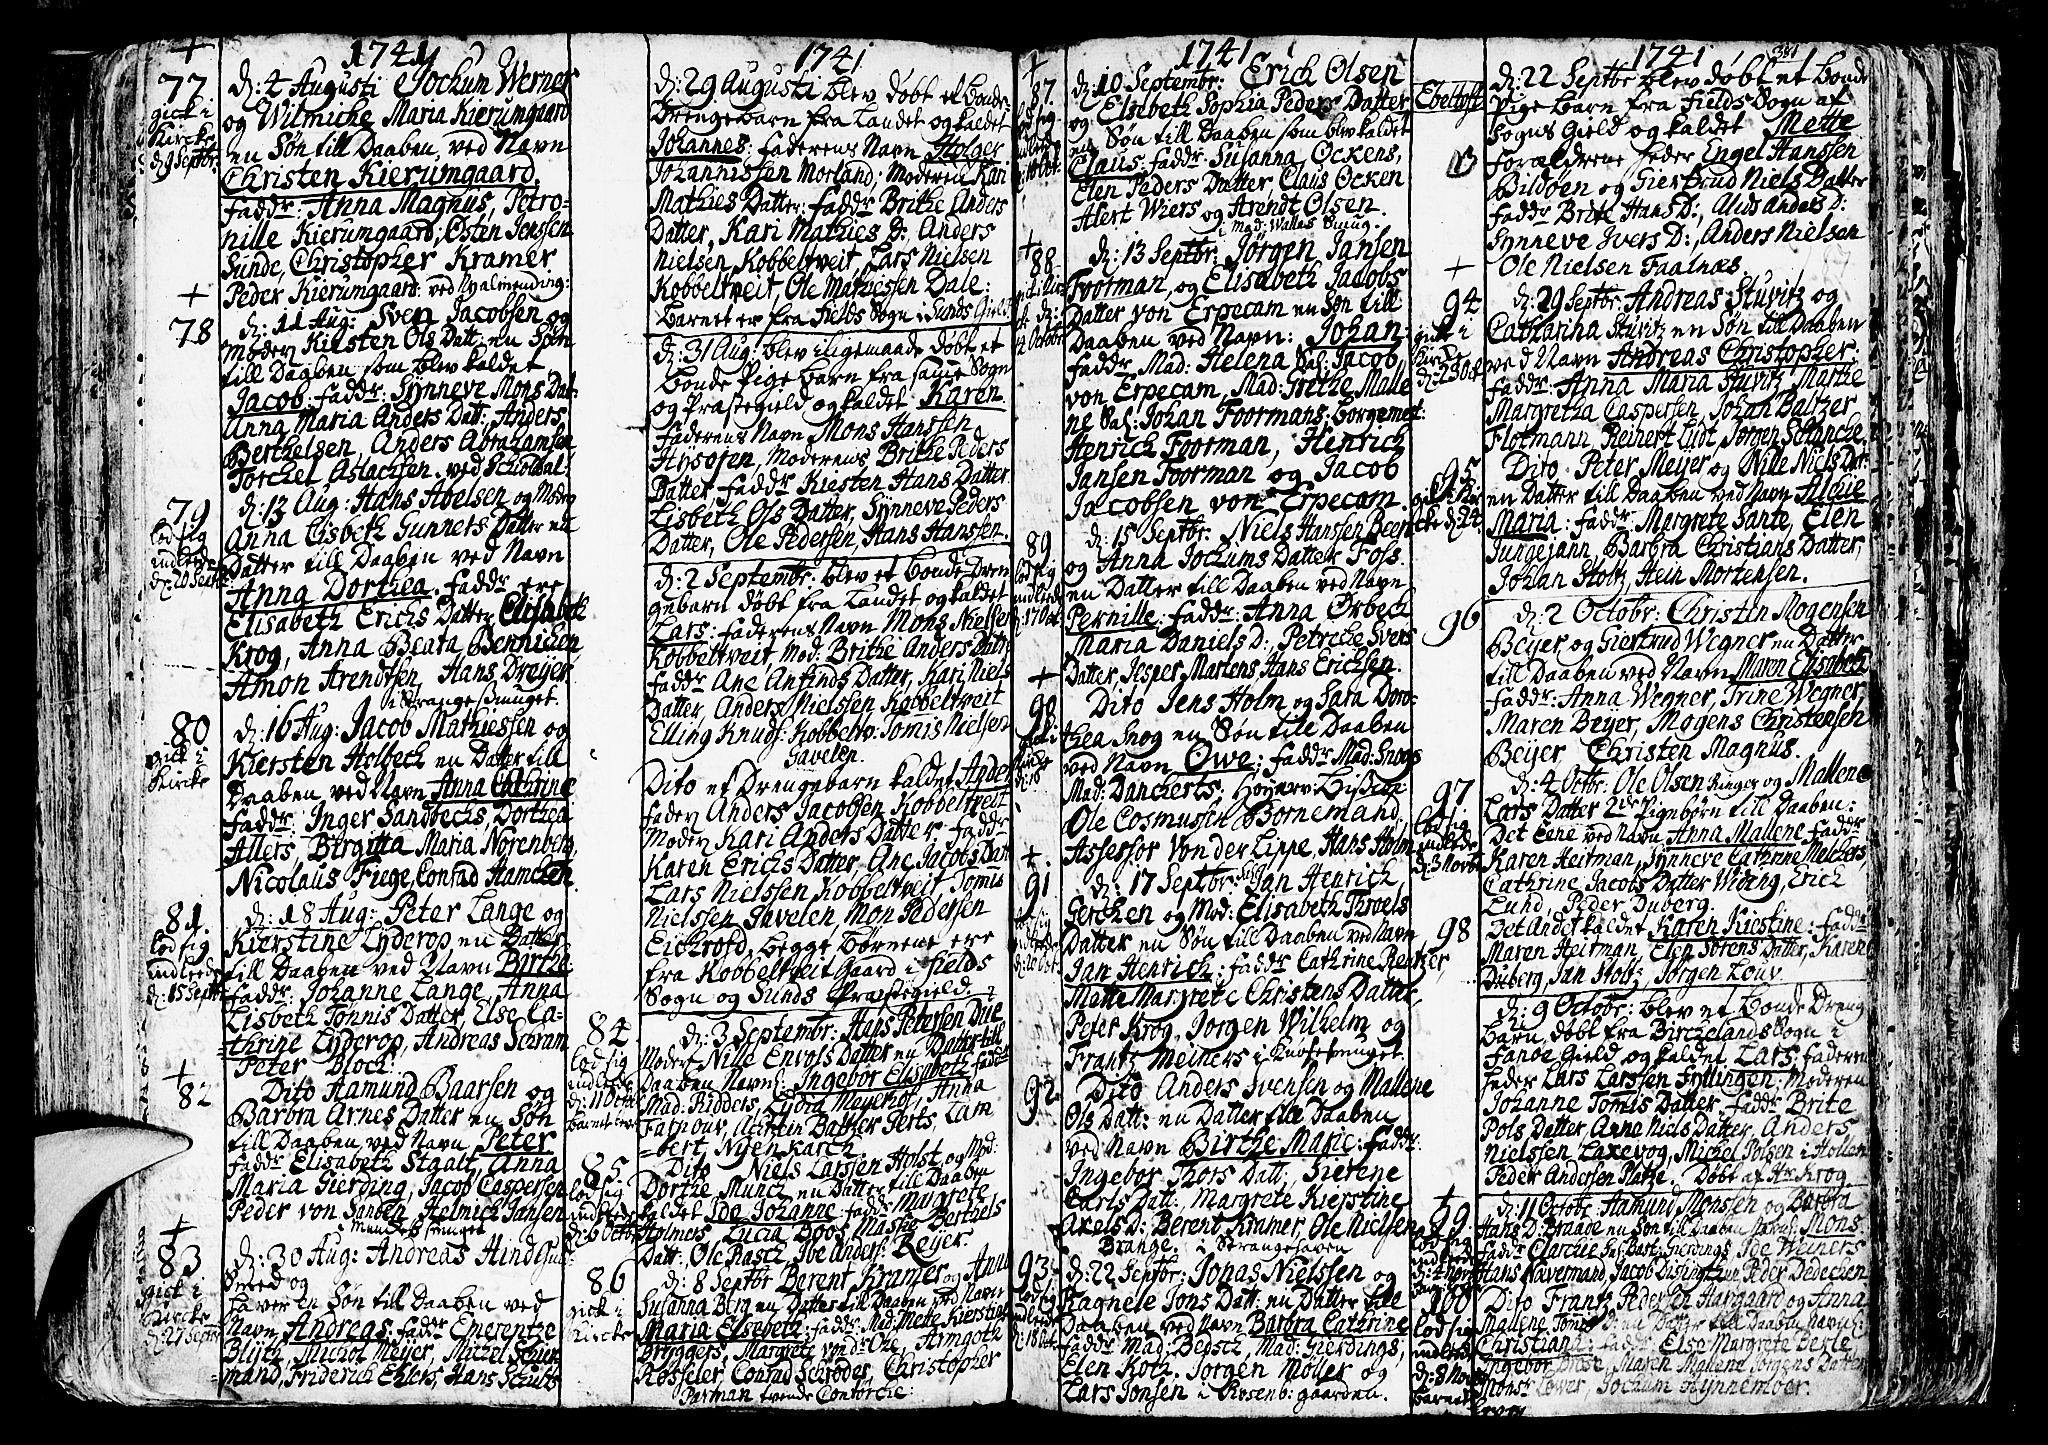 1741
77
gick i
Kircke
d: 9 Septbr:
d: 4 Augusti Jochum Werner
og Wilmicke Maria Kierumgaard
en Søn till Daaben, ved Navn
Christen Kierumgaard.
Faddr: Anna Magnus, Petro-
nille Kierumgaard, Østen Jenssen
Sunde, Christopher Kramer
Peder Kierumgaard: ved
78
d: 11 Aug: Sven Jacobsen og
Moder Kirsten Ols Datt: en Søn
till Daaben som blev kaldet
Jacob: Faddr: Synneve Mons Dat-
Anna Maria Anders Datt: Anders
Berthelsen, Anders Abrahamsen
Torchel Aslachsen. ved
79
lod sig
indlede
d: 20 Septbr
d: 13 Aug: Hans Abelsen og Moder
Anna Lisbeth Gunners Datter en
Datter till Daaben ved Navn
Anna Dorthea. Faddr ere
Elisabeth Erichs Datter, Elisabeth
Krog, Anna Beata Bennichen
Amon Arendtsen, Hans Dreyer
i Strange Smuget.
80
gick i
Kircke
d: 16 Aug: Jacob Mathiessen og
Kiersten Holbech en Datter till
Daaben ved Navn Anna Cathrine
Faddr: Inger Sandbechs, Dorthea
Allers, Birgitta Maria Norenberg,
Nicolaus Fiege, Conrad Hamchen
81.
lod sig
indlede
d: 15 Septbr
d: 18 Aug: Peter Lange og
Kierstine Lyderop en Datter
till Daaben ved Navn Birthe
Faddr: Johanne Lange, Anna
Lisbeth Tønnis Datter, Else Ca-
thrine Lyderop, Andreas Schram
Peter Bloch.
82
Dito Aamund Baarsen og
Barbra Arnes Datter en Søn
till Daaben ved Navn Peter
Faddr: Elisabeth Staalt, Anna
Maria Gierding, Jacob Caspersen
Peder von Sanden Helmich Jansen
83
gick i
Kircke
d: 27 Septbr
d: 30 Aug: Andreas
Smed og
en Søn till Daaben ved
Navn Andreas: Faddr Emerentze
Blyth, Michol Meyer, Michel
mand, Friderich Ehlers, Hans Schults
1741
d: 29 Augusti blev døbt et bonde
Drengebarn fra Landet og kaldet
Johannes: Faderens Navn Holger
Johannissen Morland; Moderen Kari
Mathies Datter: Faddr Brithe Anders
Datter, Kari Mathies D: Anders
Nielsen Kobbeltveit Lars Nielsen
Kobbeltveit, Ole Mathiessen Dale:
barnet er fra Fields Sogn i Sunds Gield
d: 31 Aug: blev iligemaade døbt et
bonde Pige barn fra samme Sogn
og Præstegield og kaldet Karen
Faderens Navn Mons Hanssen
Hysøjen, Moderens Brithe Peders
Datter: Faddr Kiesten Hans Datter
Lisbeth Ols Datter, Synneve Peders
Datter, Ole Pedersen, Hans Hanssen.
d: 2 Septembr: blev et bonde Dren
gebarn døbt fra Landet og kaldet
Lars: Faderens Navn Mons Nielsen
Kobbeltveit, Mod: Brithe Anders Datt
Faddr Ane Anfinds Datter, Kari Niels
Datter, Anders Nielssen Kobbeltveit
Elling Knuds: Kobbeltv: Tomis Nielsen
Gavelen.
Dito et Drengebarn kaldet Anders
Fader Anders Jacobsen Kobbeltveit
Moder Kari Anders Datter Faddr
Karen Erichs Datter, Ane Jacobs Datt
Lars Nielssen Kobbeltveit, Tomis
Nielssen Gavelen, Mon Pedersen
Eichrofd, begge børnene ere
fra Kobbeltveit Gaard i Fields
Sogn og Sunds Præstegield
84
lod sig
indlede
d: 11 Octbr
d: 3 Septembr: Hans Petersen Due
Moder Nille Envols Datter en Datter till
Daaben Navn: Ingebor Elisabeth Faddr
Mad: Ridders, Lydia Meyerhof, Anna
Lam
bert Nyenkarch.
85
lod sig
indlede
d: 6 Octbr
Dito Niels Larssen Holst og Mod:
Dorthe Munch en Datter till Daaben
kaldet Ide Johanne Fadd: Margrete
Holmers, Lucia Boos, Maske Berthels
Datt: Ole Rasch, Ibe Anders: Reijer.
86
gick i
Kircke
d: 8 Septbr Berent Kramer og Anna
Susanna Berg en Datter till Daaben ved Navn
Maria Elsebeth: Faddr: Mad: Mette Kierstine
Bryggers, Margrete von de Ohe, Armgoth
Rosseler, Conrad Schrøder, Christopher
Parman tvende Contorske:
1741
87
lod sig
indlede
d: 10 Septembr: Erich Olsen
og Elsebeth Sophia Peders Datter
en Søn till Daaben som blev kaldet
Claus: Faddr: Susanna Ockens,
Elen Peders Datter, Claus Ocken
Alert Wiers og Arendt Olsen.
i Mad: Wallas Smug.
88
d: 13 Septbr: Jørgen Jansen
Foorman, og Elisabeth Jacobs
Datter von Erpecam en Søn till
Daaben ved Navn: Johan:
Faddr: Mad: Helena Sal: Jacob
von Erpecam, Mad: Grethe Malle
ne Sal: Johan Foormans: borgemest:
Henrich Foorman, Henrich
Jansen Foorman og Jacob
Jacobsen von Erpecam.
89
lod sig
indlede
d: 17 Oct
d: 15 Septbr: Niels Hanssen Beer
og Anna Jochums Datter Fols
en Datter till Daaben ved Navn
Pernille: Faddr: Anna Ørbech
Maria Daniels D:, Petricke Ivers
Datter, Jesper Martens, Hans Erichsen.
90
Dito Jens Holm og Sara Doro-
thea Snog en Søn till Daaben
ved Navn Owe; Faddr Mad: Snogs
Mad: Danckerts, Høyærv: Bisp
Ole Cosmussen Bornemand,
Assessor von der Lippe, Hans Holm
91
lod sig
indlede
d: 20 Oct:
d: 17 Septbr: Jan Henrich
Gercken og Mod: Elisabeth Throels
Datter en Søn till Daaben ved Navn
Jan Henrich: Faddr Cathrine Reutzer,
Mette Margrete Christens Datter,
Peter Krog, Jørgen Wilhelm og
Frantz Meiners i
92
Dito Anders Svensen og Mallene
Ols Datt: en Datter till Daaben
ved Navn Birthe Marie: Faddr:
Ingebor Thors Datt, Sierene
Carls Datt: Margrete Kierstine
Axels D: Berent Kramer, Ole Nielsen
Brange. i Strangehaven
93
lod sig
indlede
d: 18 Oct
d: 22 Septbr: Jonas Nielssen og
Ragnele Jons Datt: en Datter till
Daaben ved Navn Barbra Cathrine
Faddr Mad: Besche, Mad: Gierdings,
Elen Koth, Jørgen Møller og
Lars Jonsen i Rosenb: gaarden.
1741
381
d: 22 Septbr blev døbt et bonde
Pige barn fra Fields Sogn af
Sogns Gield og kaldet Mette
Forældrene heder Engel Hanssen
Bildøen og Giertrud Niels Datter
Faddr Brite Hans D:, Alids Anders D:
Synneve Ivers D:, Anders Nielsen
Ole Nielsen Faalnæs.
94
gick i
Kircke
d: 23 Oct
d: 29 Septbr: Andreas Stuvitz og
Catharina Stuvitz en Søn till Daaben
ved Navn Andreas Christopher.
Faddr: Anna Maria Stuvitz, Marthe
Margretha Caspersen, Johan Baltzer
Flotmann, Reinert Ludt, Jørgen Schancke.
95
Dito Peter Meijer og Nille Niels Dat:
en Datter till Daaben ved Navn
Maria: Faddr: Margrete Sante, Elen
Jungejann, Barbra Christians Datter,
Johan Stoltz, Hein Mortensen.
96
d: 2 Octobr: Christen Mogensen
Beijer og Giertrud Wegner en Datter
till Daaben ved Navn Maren Elisabeth
Faddr: Anna Wegner, Trine Wegner,
Maren Beyer, Mogens Christensen
Beijer Christen Magnus.
97
lod sig
indlede
d: 3 Novbr
d: 4 Octbr: Ole Olsen Ringer og Mallene
Lars Datter 2de Pigebørn till Daaben:
Det Eene ved Navn Anna Mallene Faddr
Karen Heitman, Synneve Cathrine Melchers,
Cathrine Jacobs Datter Widing, Erich
Lund, Peder Duberg.
98
Det Andet kaldet Karen Kiestine: Faddr
Maren Heitman, Elen Sørens Datter, Karen
Duberg, Jan Stoltz, Jørgen Louv.
d: 9 Octobr: blev et bonde Dreng
barn, døbt fra Birckelands Sogn i
Fanøe Gield og kaldet Lars Faderen
heder Lars Larssen Fyllingen; Moderen
Johanne Tomis Datter Faddr Brite
Pols Datter, Anne Niels Datter, Anders
Nielssen Laxevog, Michel Polsen i Hollen
Peder Andersen Platze. Døbt af Hr Krog
99
lod sig
indlede
d: 11 Octobr Aamund Monsen og Barbra
Hans D. Braade en Søn till Daaben Navn: Mons
Hans Havermand, Jacob Peder Dedechen
100
lod sig
indlede
d: 8 Nov
Dito Frantz Peder Aargaard og Anna
Mallene en Datter till Daaben Navn:
Christiana: Faddr: Else Margrete Berle
Ingebor Brose, Maren Mallene Jørgens Datter
Jochum Hynnemoer.